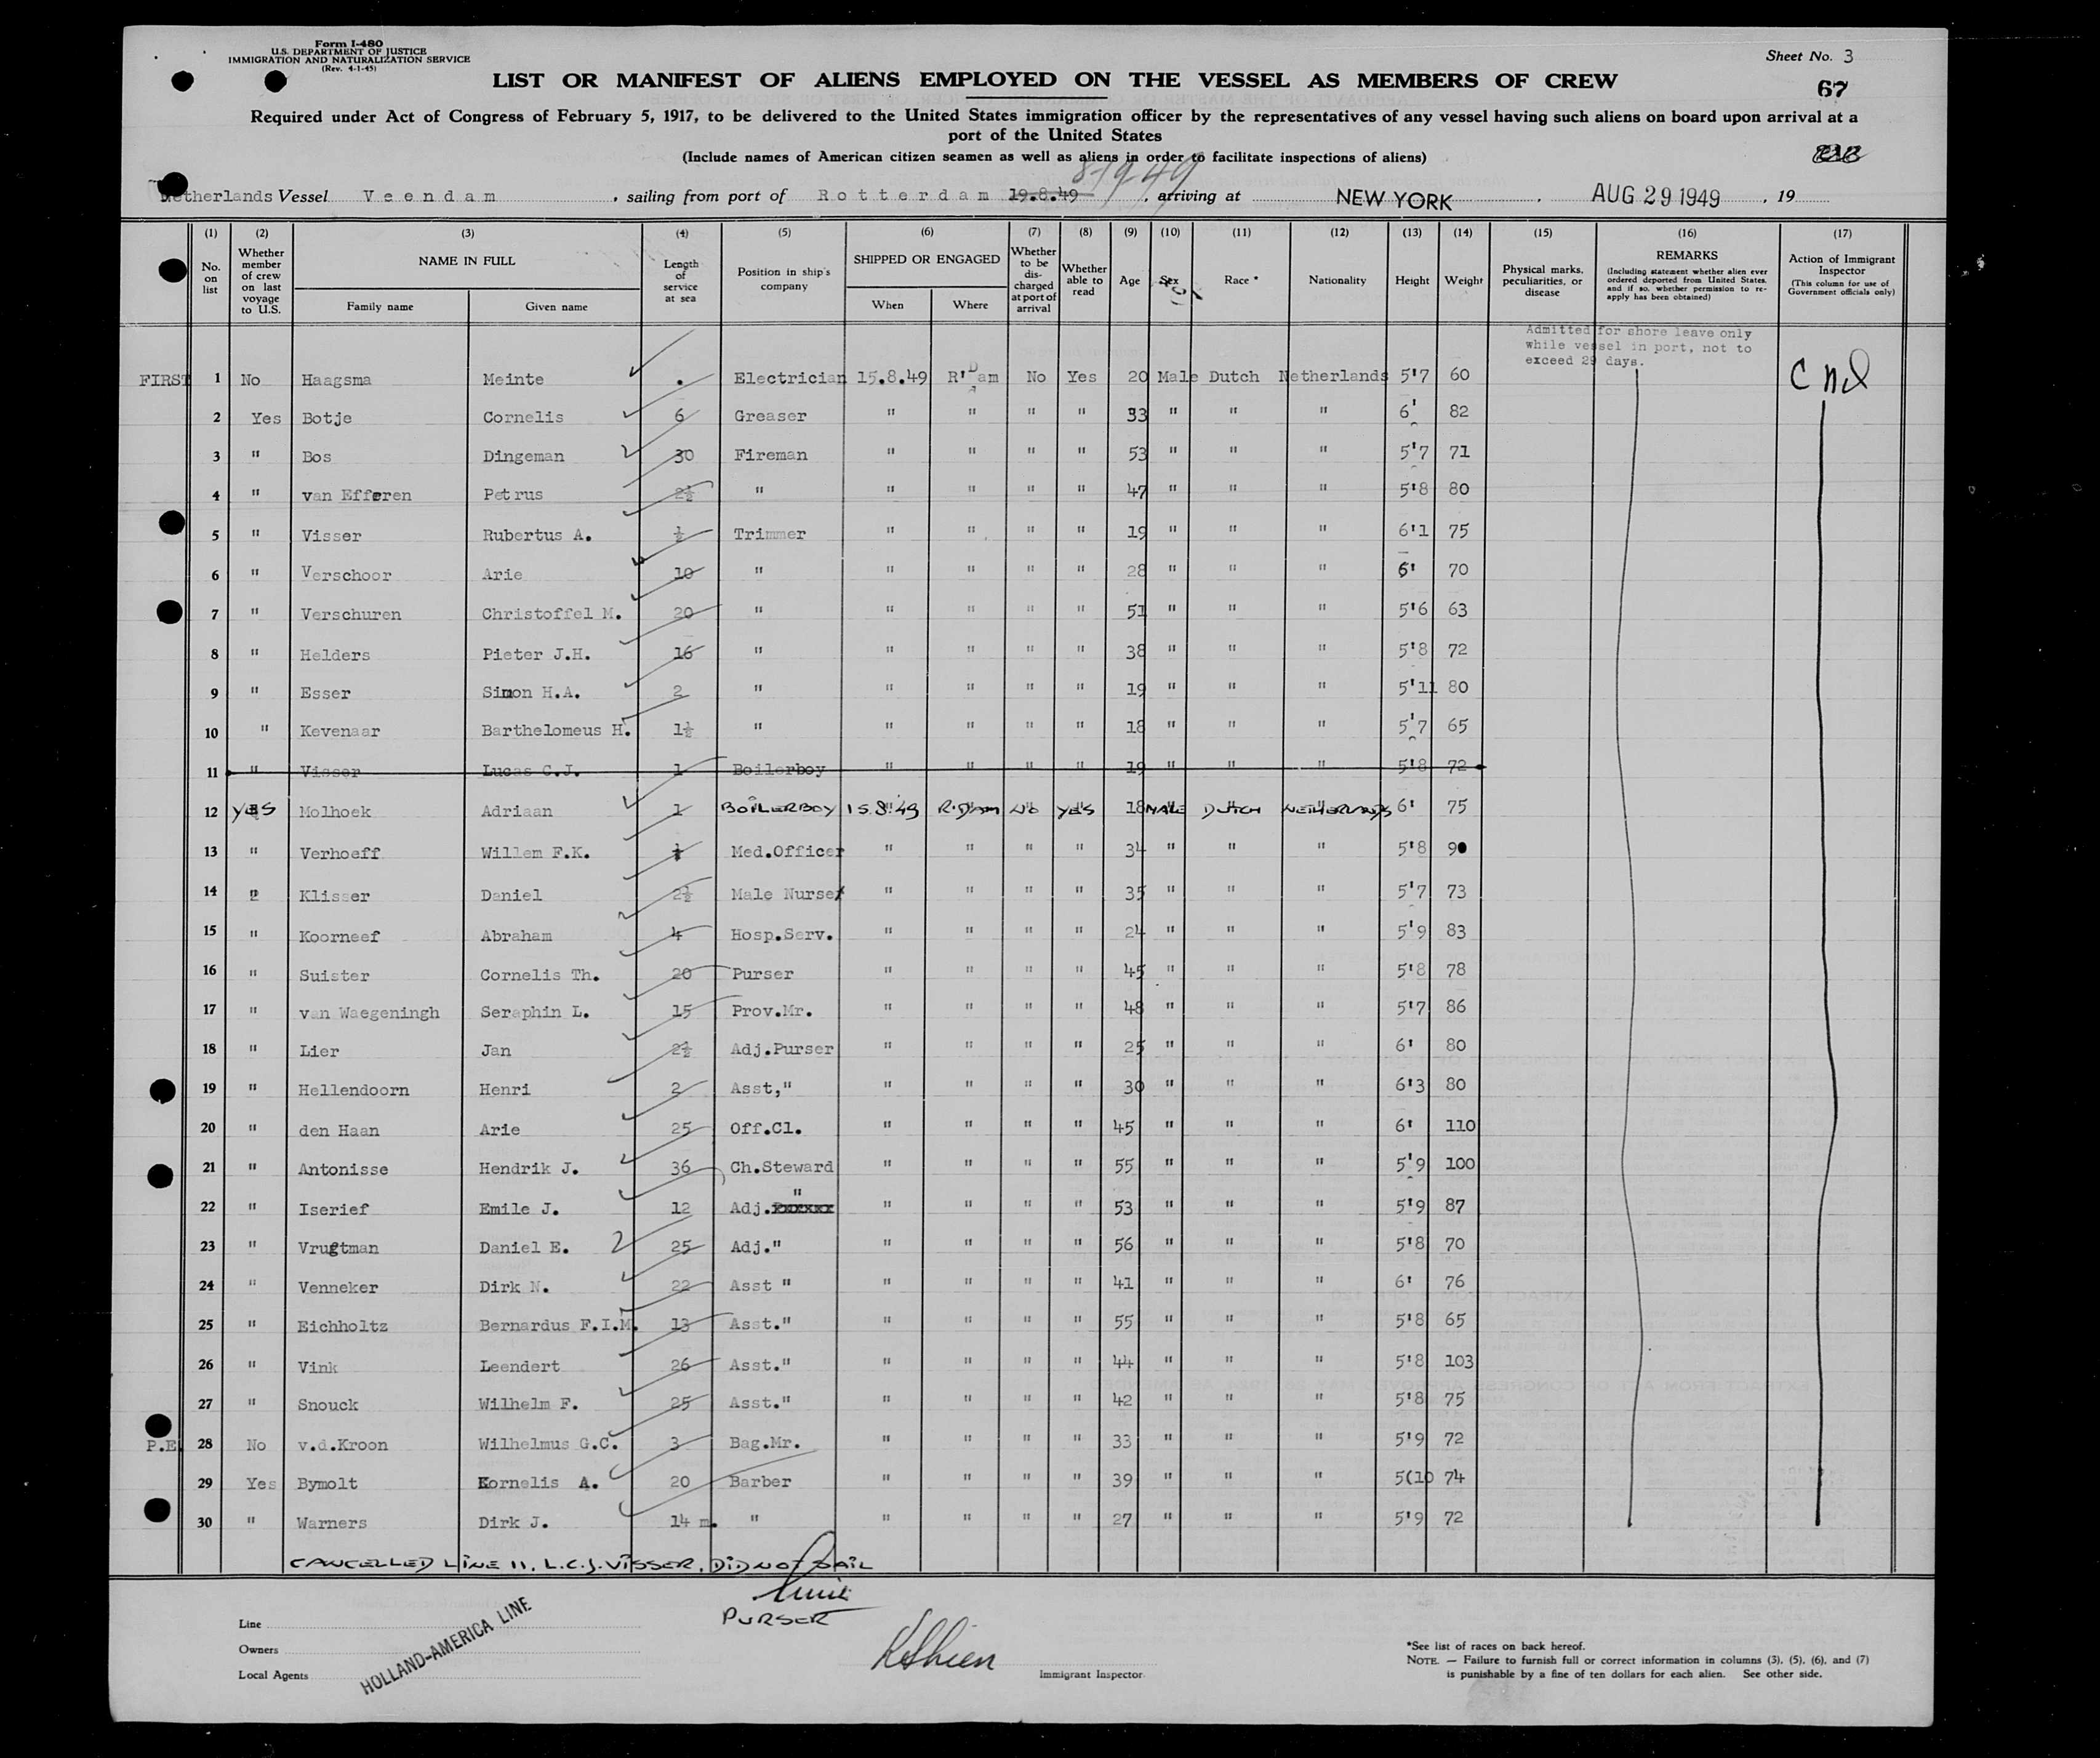 Form I-480
U.S. DEPARTMENT OF JUSTICE
IMMIGRATION AND NATURALIZATION SERVICE
(Rev. 4-1-45)
Sheet No. 3
LIST OR MANIFEST OF ALIENS EMPLOYED ON THE VESSEL AS MEMBERS OF CREW
67
Required under Act of Congress of February 5, 1917, to be delivered to the United States immigration officer by the representatives of any vessel having such aliens on board upon arrival at a
port of the United States
(Include names of American citizen seamen as well as aliens in order to facilitate inspections of aliens)
8-19-49
Netherlands Vessel Veendam , sailing from port of Rotterdam 19.8.49 , arriving at NEW YORK , AUG 29 1949 , 19
(1) (2) (3) (4) (5) (6) (7) (8) (9) (10) (11) (12) (13) (14) (15) (16) (17)
No. on list | Whether member of crew on last voyage to U.S. | NAME IN FULL | Family name | Given name | Length of service at sea | Position in ship's company | SHIPPED OR ENGAGED | When | Where | Whether to be discharged at port of arrival | Whether able to read | Age | Sex | Race * | Nationality | Height | Weight | Physical marks, peculiarities, or disease | REMARKS (Including statement whether alien ever ordered deported from United States, and if so, whether permission to re-apply has been obtained) | Action of Immigrant Inspector (This column for use of Government officials only)
Admitted for shore leave only
while vessel in port, not to
exceed 29 days.
FIRST 1 No Haagsma Meinte . Electrician 15.8.49 R'Dam No Yes 20 Male Dutch Netherlands 5'7 60
2 Yes Botje Cornelis 6 Greaser " " " " 33 " " " 6' 82
3 " Bos Dingeman 30 Fireman " " " " 53 " " " 5'7 71
4 " van Efferen Petrus 2½ " " " " " 47 " " " 5'8 80
5 " Visser Rubertus A. ½ Trimmer " " " " 19 " " " 6'1 75
6 " Verschoor Arie 10 " " " " " 28 " " " 6' 70
7 " Verschuren Christoffel M. 20 " " " " " 51 " " " 5'6 63
8 " Helders Pieter J.H. 16 " " " " " 38 " " " 5'8 72
9 " Esser Simon H.A. 2 " " " " " 19 " " " 5'11 80
10 " Kevenaar Barthelomeus H. 1½ " " " " " 18 " " " 5'7 65
11 " Visser Lucas C.J. 1 Boilerboy " " " " 19 " " " 5'8 72
12 YES Molhoek Adriaan 1 BOILERBOY 15.8.49 R.DAM NO YES 18 MALE DUTCH NETHERLANDS 6' 75
13 " Verhoeff Willem F.K. Med.Officer " " " " 34 " " " 5'8 90
14 " Klisser Daniel 2½ Male Nurse " " " " 35 " " " 5'7 73
15 " Koorneef Abraham 4 Hosp.Serv. " " " " 24 " " " 5'9 83
16 " Suister Cornelis Th. 20 Purser " " " " 45 " " " 5'8 78
17 " van Waegeningh Seraphin L. 15 Prov.Mr. " " " " 48 " " " 5'7 86
18 " Lier Jan 2½ Adj.Purser " " " " 25 " " " 6' 80
19 " Hellendoorn Henri 2 Asst," " " " " 30 " " " 6'3 80
20 " den Haan Arie 25 Off.Cl. " " " " 45 " " " 6' 110
21 " Antonisse Hendrik J. 36 Ch.Steward " " " " 55 " " " 5'9 100
22 " Iserief Emile J. 12 Adj. " " " " " 53 " " " 5'9 87
23 " Vrugtman Daniel E. 25 Adj." " " " " 56 " " " 5'8 70
24 " Venneker Dirk N. 22 Asst " " " " " 41 " " " 6' 76
25 " Eichholtz Bernardus F.I.M. 13 Asst." " " " " 55 " " " 5'8 65
26 " Vink Leendert 26 Asst." " " " " 44 " " " 5'8 103
27 " Snouck Wilhelm F. 25 Asst." " " " " 42 " " " 5'8 75
P.E. 28 No v.d.Kroon Wilhelmus G.C. 3 Bag.Mr. " " " " 33 " " " 5'9 72
29 Yes Bymolt Kornelis A. 20 Barber " " " " 39 " " " 5(10 74
30 " Warners Dirk J. 14 m. " " " " " 27 " " " 5'9 72
CANCELLED LINE 11, L.C.J. VISSER, DID NOT SAIL
PURSER
Line
Owners
Local Agents
HOLLAND-AMERICA LINE
Immigrant Inspector
*See list of races on back hereof.
NOTE. — Failure to furnish full or correct information in columns (3), (5), (6), and (7)
is punishable by a fine of ten dollars for each alien. See other side.